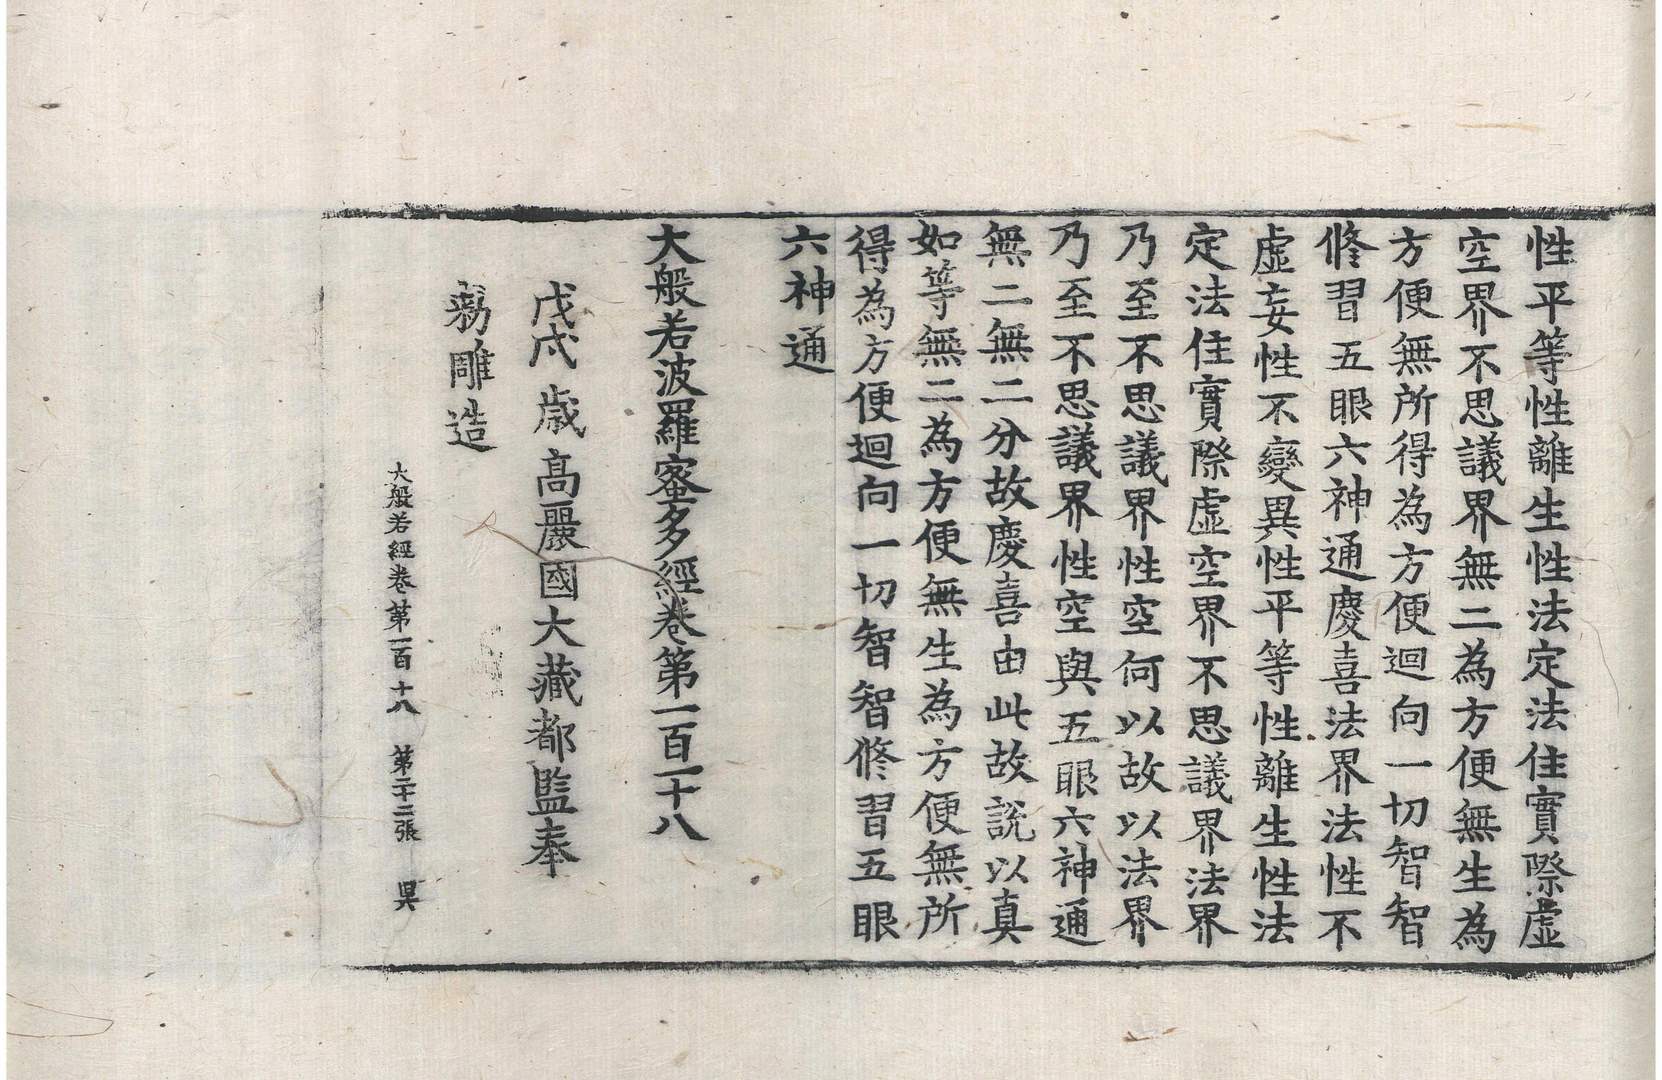 性平等性離生性法定法住實際虛
空界不思議界無二為方便無生為
方便無所得為方便迴向一切智智
修習五眼六神通慶喜法界法性不
虛妄性不變異性平等性離生性法
定法住實際虛空界不思議界法界
乃至不思議界性空何以故以法界
乃至不思議界性空與五眼六神通
無二無二分故慶喜由此故說以真
如等無二為方便無生為方便無所
得為方便迴向一切智智修習五眼
六神通
大般若波羅蜜多經卷第一百一十八
戊戌歲高麗國大藏都監奉
勑雕造
大般若經卷第一百十八 第二十二張 昃